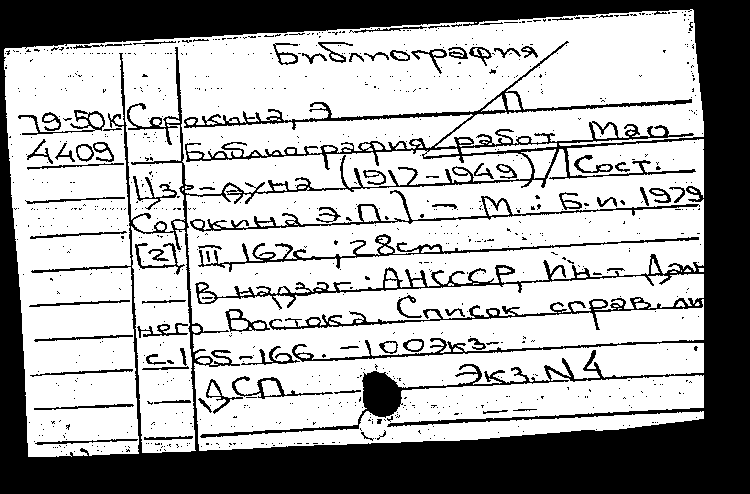 Библиография
79-50к Сорокина, Э П
4409 Библиография работ Мао
Цзе-дуна (1917-1949) / [Сост.
Сорокина Э.П.]. - М.: Б.и., 1979
[2], III, 167с.; 28cm.
В надзаг: АНСССР, Ин-т Даль
него Востока. Список справ. ли
с.165-166. - 100экз.
ДСП. Экз. N 4